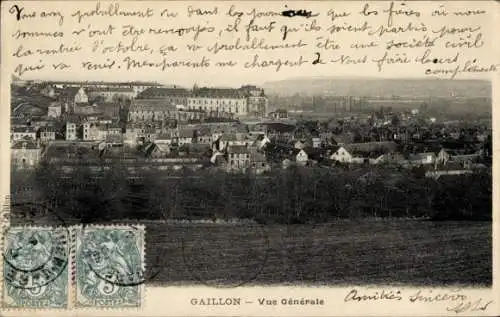 Vous avez probablement vu dans les journaux que les frères où nous
sommes vont être renvoyés, il faut qu'ils soient partis pour
la rentrée d'octobre, ça va probablement être une société civil
qui va venir. Mes parents me chargent de vous faire bien
compliments
5
5
GAILLON — Vue Générale
Amitiés sincères